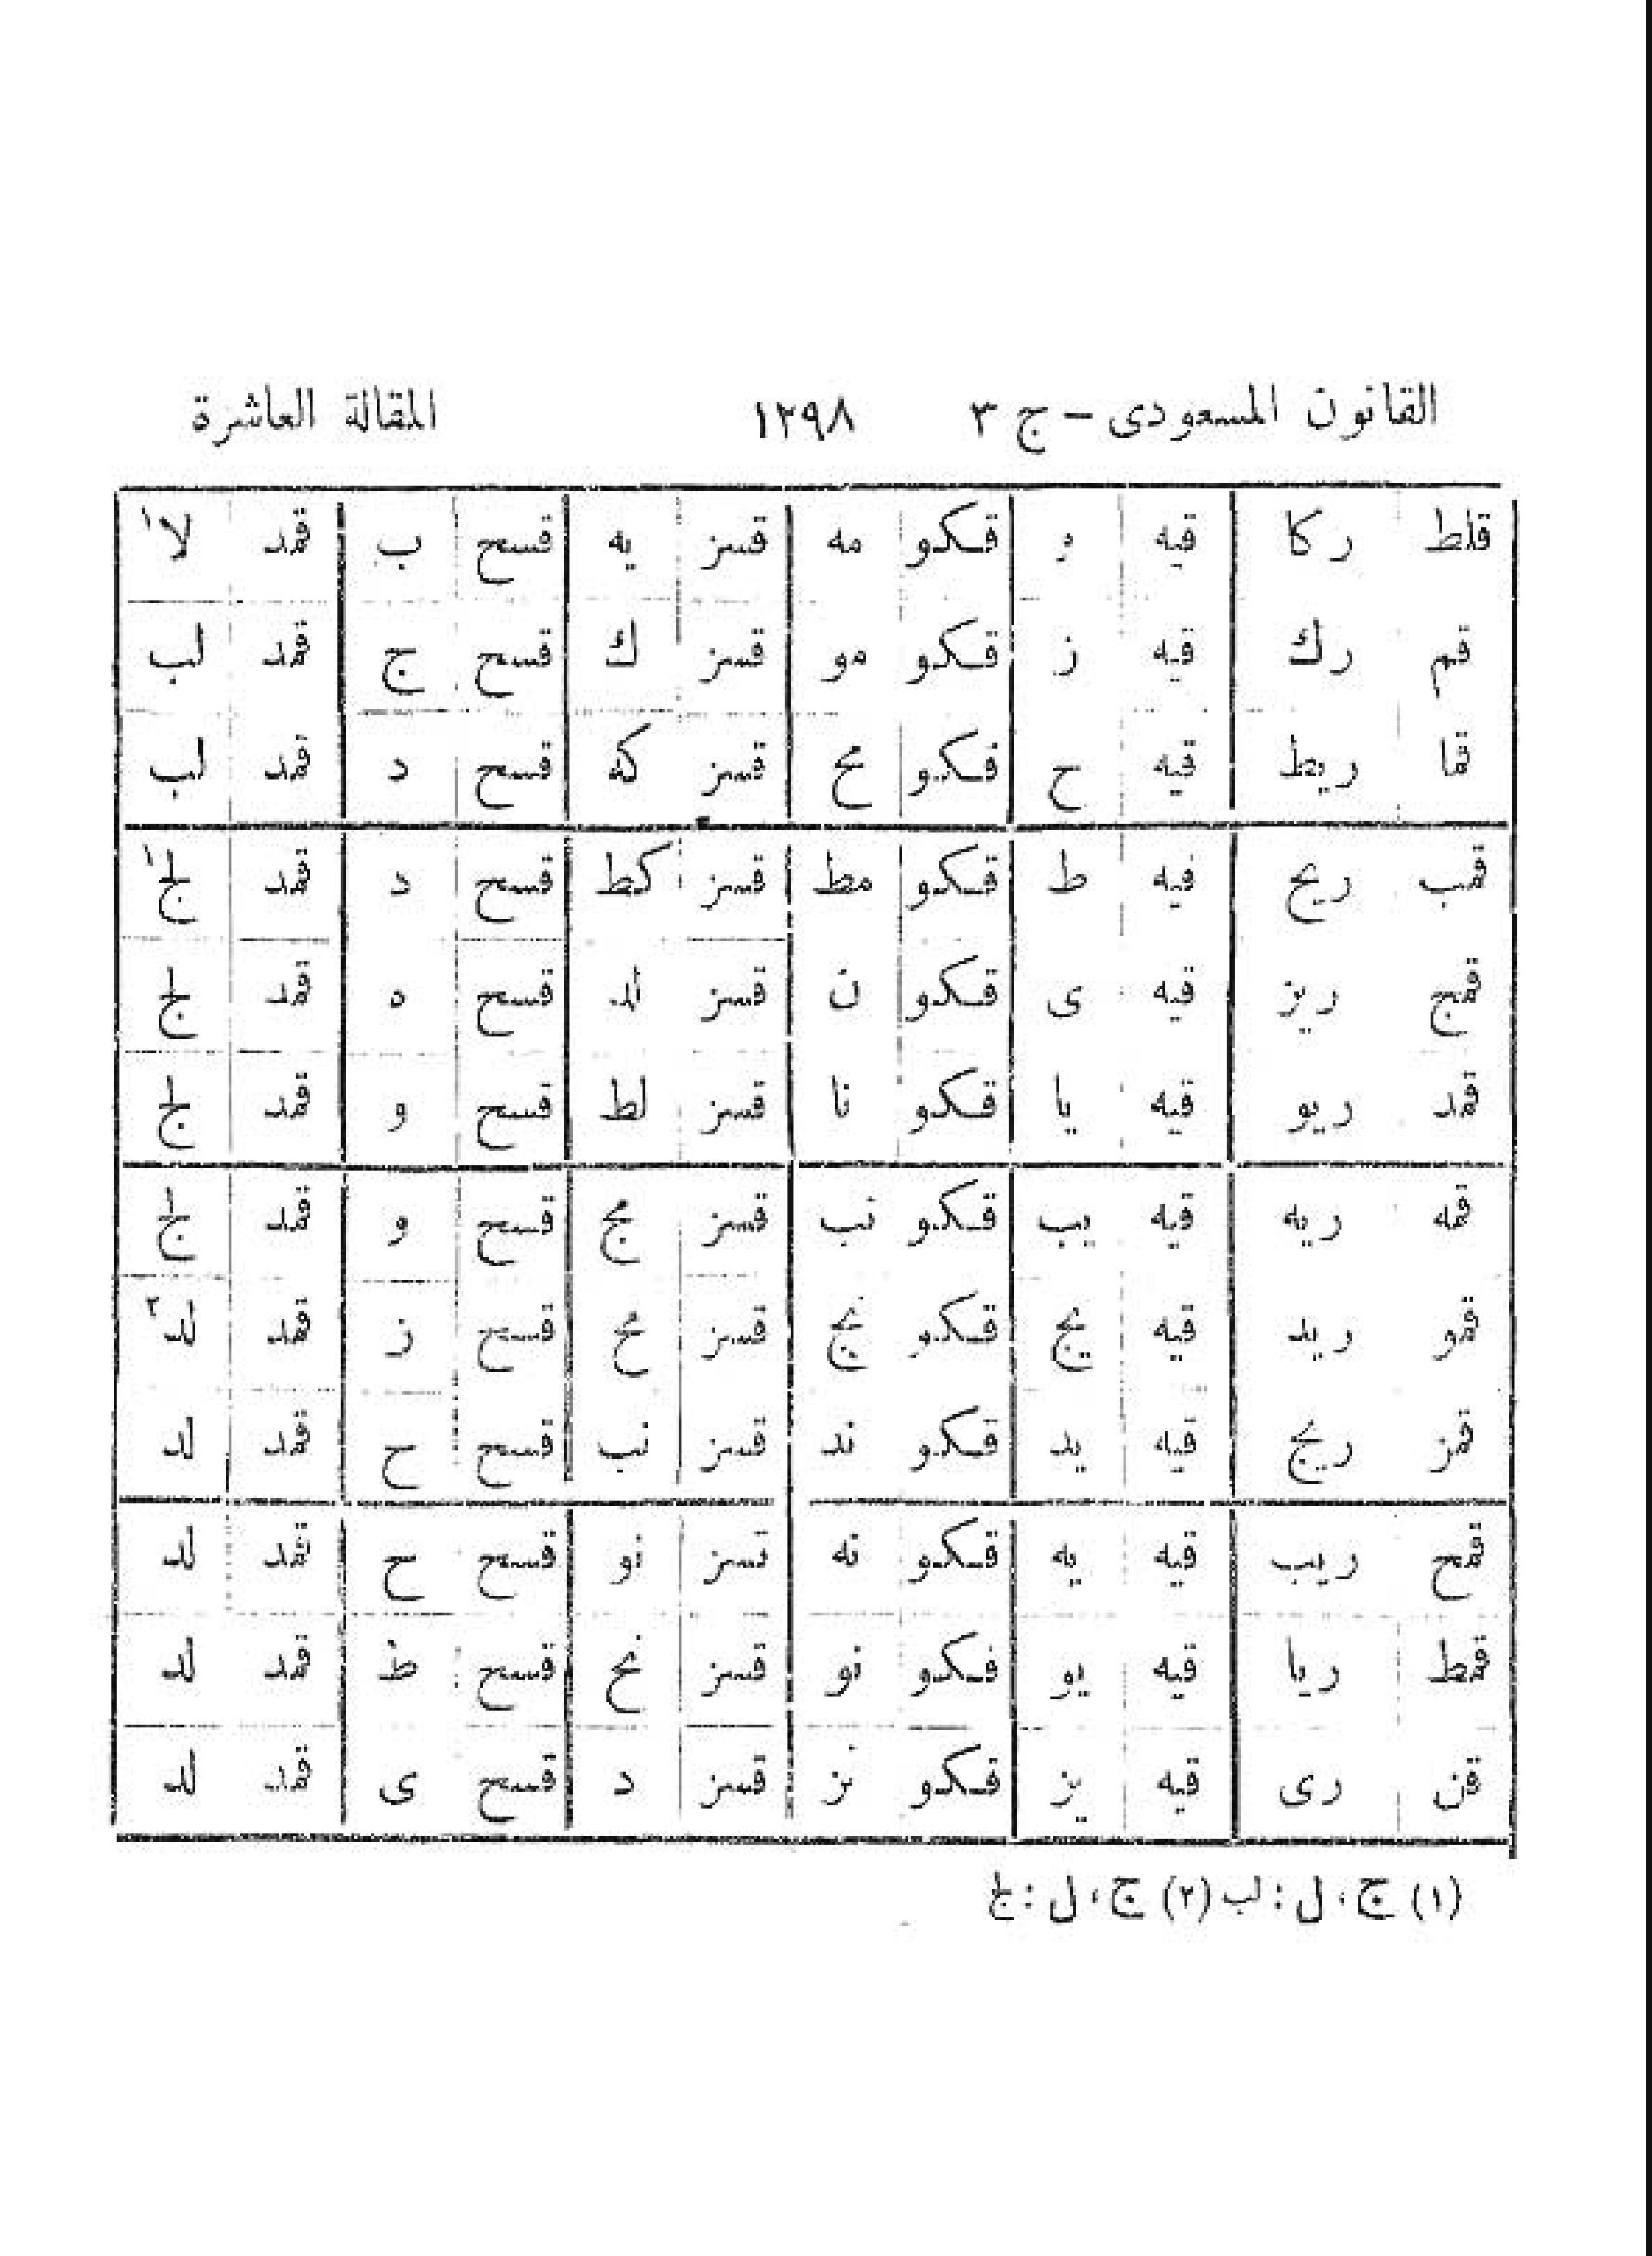 القانون المسعودى – ج ٣ ١٢٩٨ المقالة العاشرة
قلط ركا قيه و قكو مه قسز يه قسح ب قمد لا١
قم رك قيه ز قكو مو قسز ك قسح ج قمد لب
قما ريط قيه ح قكو مح قسز كه قسح د قمد لب
قمب ريح قيه ط قكو مط قسز كط قسح د قمد لج١
قمج ريز قيه ى قكو ن قسز لد قسح ه قمد لج
قمد ريو قيه يا قكو نا قسز لط قسح و قمد لج
قمه ريه قيه يب قكو نب قسز مج قسح و قمد لج
قمو ريد قيه يج قكو نج قسز مح قسح ز قمد لد٢
قمز ريج قيه يد قكو ند قسز نب قسح ح قمد لد
قمح ريب قيه يه قكو نه قسز نو قسح ح قمد لد
قمط ريا قيه يو قكو نو قسز نح قسح ط قمد لد
قن رى قيه يز قكو نز قسز د قسح ى قمد لد
(١) ج، ل : لب (٢) ج، ل : لج